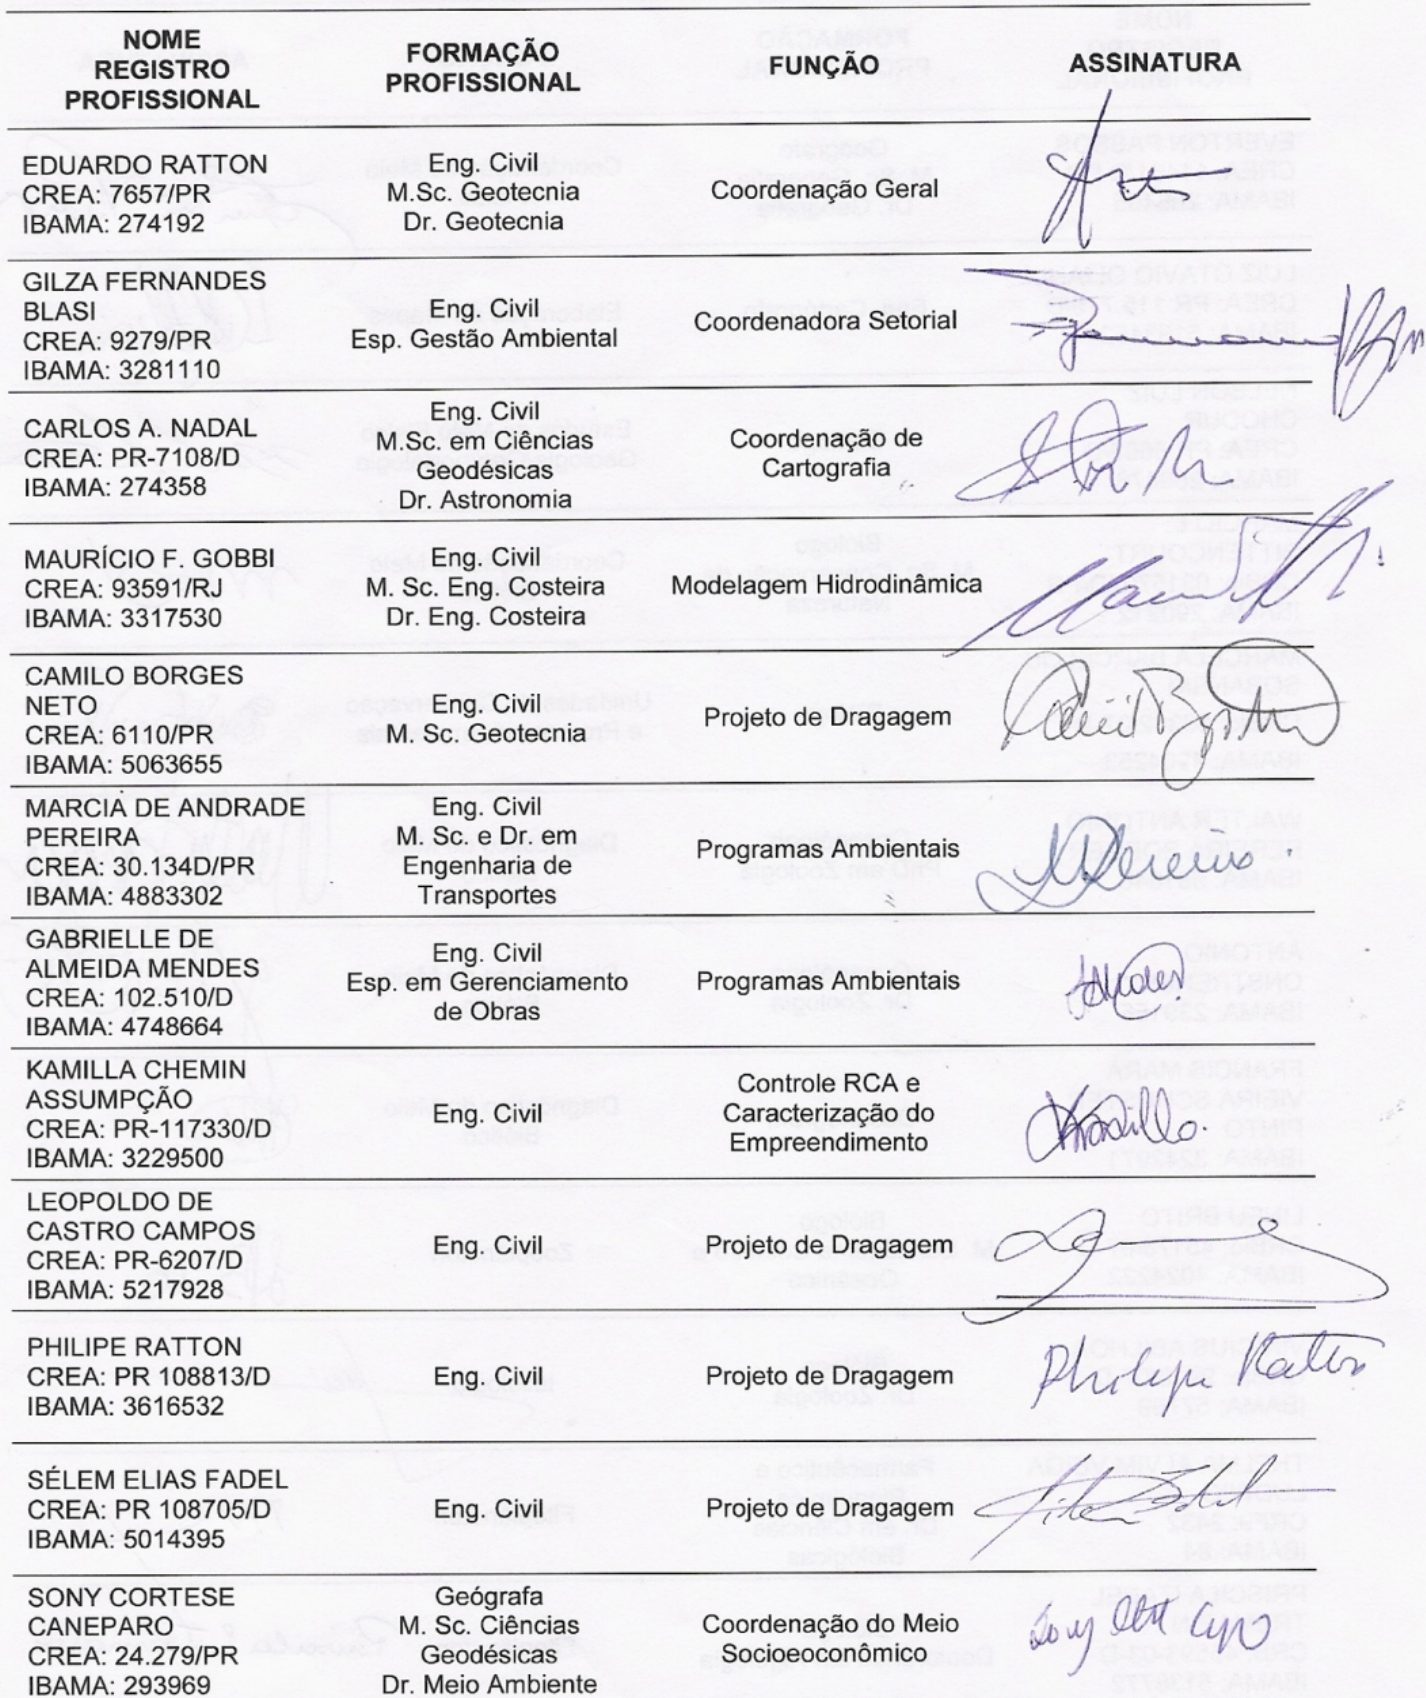 NOME
REGISTRO
PROFISSIONAL
FORMAÇÃO
PROFISSIONAL
FUNÇÃO
ASSINATURA
EDUARDO RATTON
CREA: 7657/PR
IBAMA: 274192
Eng. Civil
M.Sc. Geotecnia
Dr. Geotecnia
Coordenação Geral
GILZA FERNANDES
BLASI
CREA: 9279/PR
IBAMA: 3281110
Eng. Civil
Esp. Gestão Ambiental
Coordenadora Setorial
CARLOS A. NADAL
CREA: PR-7108/D
IBAMA: 274358
Eng. Civil
M.Sc. em Ciências
Geodésicas
Dr. Astronomia
Coordenação de
Cartografia
MAURÍCIO F. GOBBI
CREA: 93591/RJ
IBAMA: 3317530
Eng. Civil
M. Sc. Eng. Costeira
Dr. Eng. Costeira
Modelagem Hidrodinâmica
CAMILO BORGES
NETO
CREA: 6110/PR
IBAMA: 5063655
Eng. Civil
M. Sc. Geotecnia
Projeto de Dragagem
MARCIA DE ANDRADE
PEREIRA
CREA: 30.134D/PR
IBAMA: 4883302
Eng. Civil
M. Sc. e Dr. em
Engenharia de
Transportes
Programas Ambientais
GABRIELLE DE
ALMEIDA MENDES
CREA: 102.510/D
IBAMA: 4748664
Eng. Civil
Esp. em Gerenciamento
de Obras
Programas Ambientais
KAMILLA CHEMIN
ASSUMPÇÃO
CREA: PR-117330/D
IBAMA: 3229500
Eng. Civil
Controle RCA e
Caracterização do
Empreendimento
LEOPOLDO DE
CASTRO CAMPOS
CREA: PR-6207/D
IBAMA: 5217928
Eng. Civil
Projeto de Dragagem
PHILIPE RATTON
CREA: PR 108813/D
IBAMA: 3616532
Eng. Civil
Projeto de Dragagem
Philipe Ratton
SÉLEM ELIAS FADEL
CREA: PR 108705/D
IBAMA: 5014395
Eng. Civil
Projeto de Dragagem
SONY CORTESE
CANEPARO
CREA: 24.279/PR
IBAMA: 293969
Geógrafa
M. Sc. Ciências
Geodésicas
Dr. Meio Ambiente
Coordenação do Meio
Socioeconômico